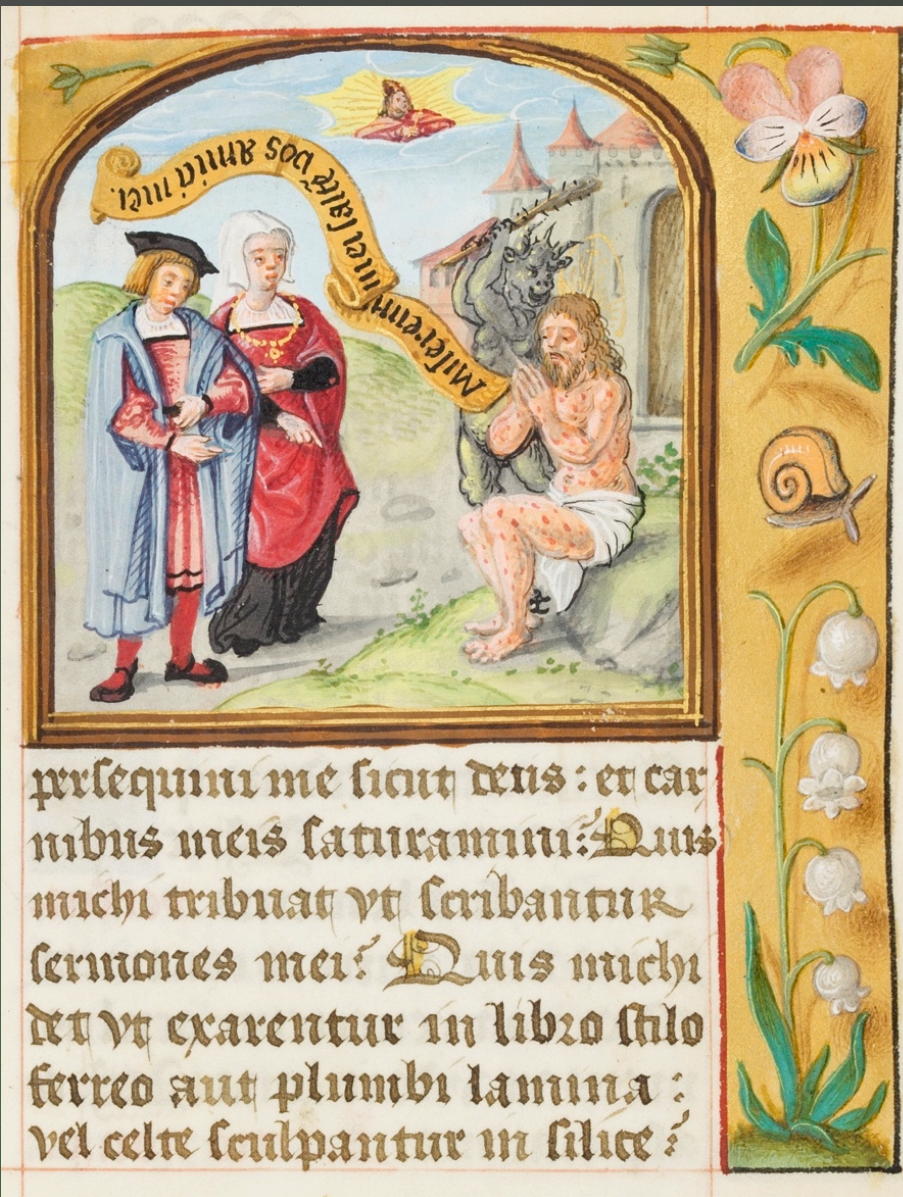 Miseremi mei saltē vos amici mei.
persequimi me sicut deus : et car
nibus meis saturamini : Quis
michi tribuat vt scribantur
sermones mei : Quis michi
det vt exarentur in libro stilo
ferreo aut plumbi lamina :
vel celte sculpantur in silice :